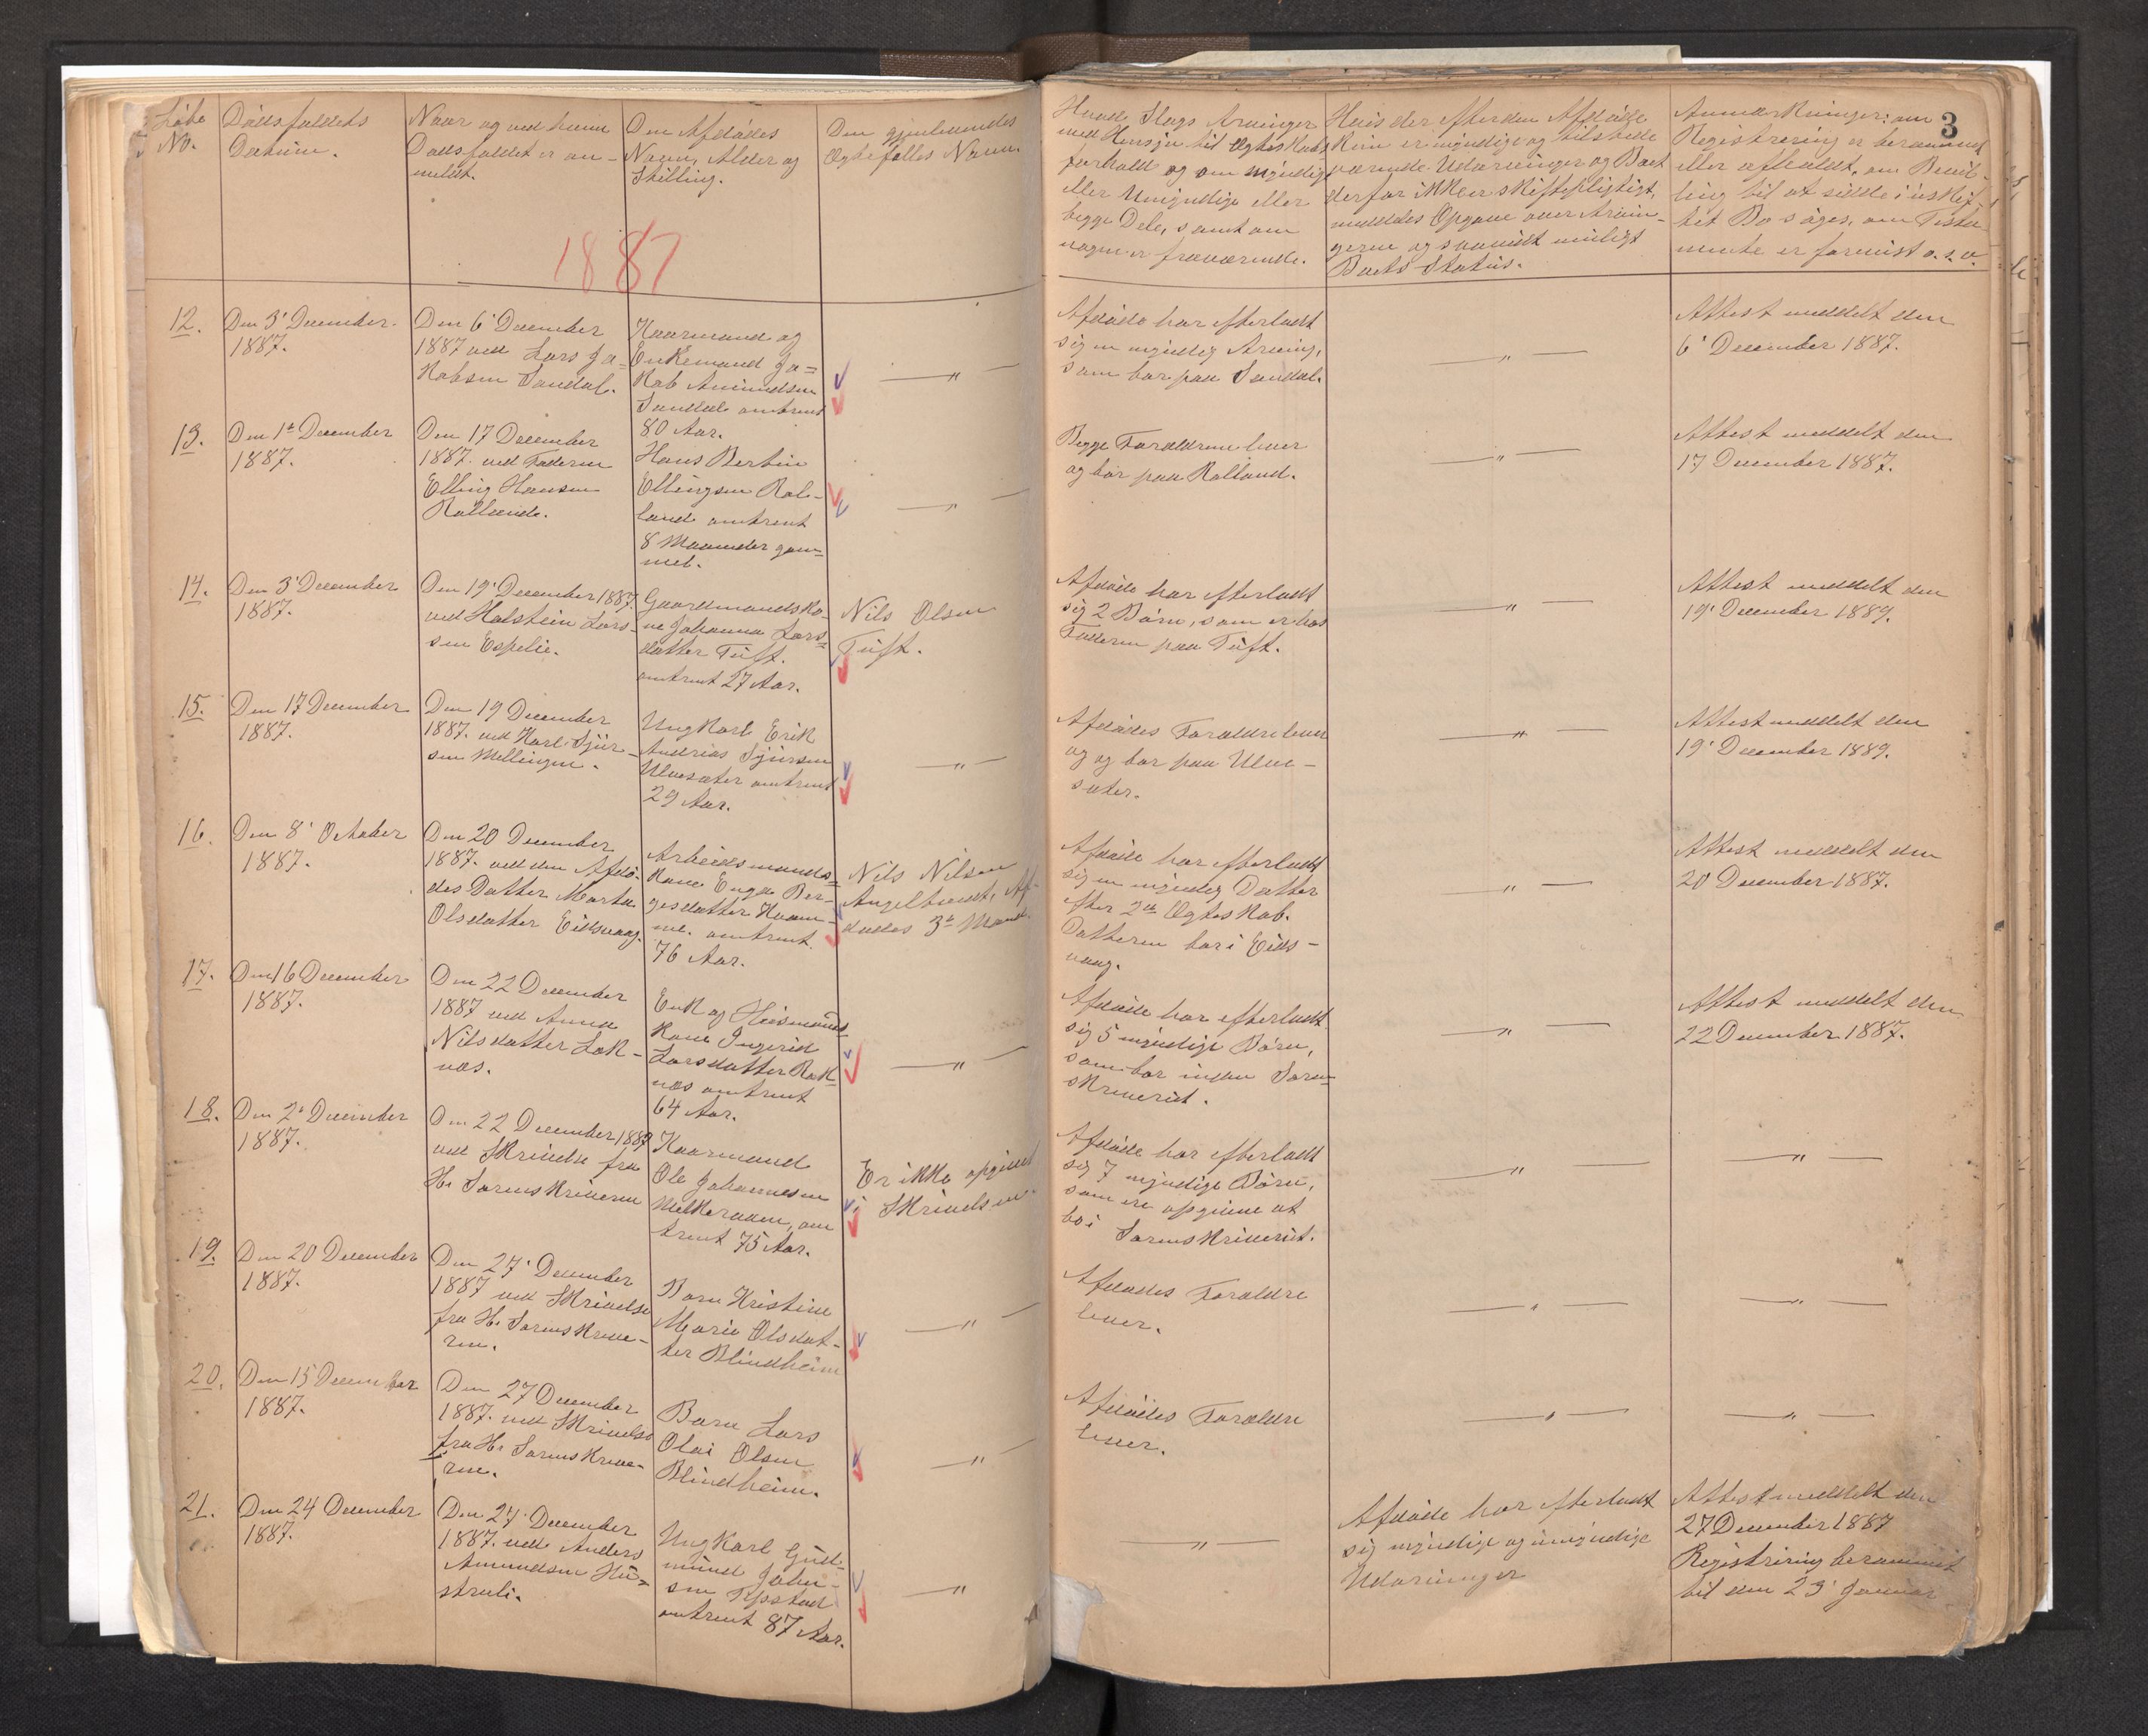 Løbe
No.
Dødsfaldets
Datum.
Naar og ved hvem
Dødsfaldet er an-
meldt.
Den Afdødes
Navn, Alder og
Stilling.
Den gjenlevendes
Ægtefælles Navn.
1887
Hvad Slags Arvinger
med Hensyn til Ægteskabs
forhold og om myndige
eller Umyndige eller
begge Dele, samt om
nogen er fraværende.
Hvis der efter den Afdøde
kun er myndige og tilstede
værende Udarvinger og Boet
derfor ikke er skiftepligtigt,
meddeles Opgave over Arvin-
gerne og saavidt muligt
Boets Status.
Anmærkninger: om
Registrering er berammet
eller afholdt, om Bevil-
ling til at sidde i uskif-
tet Bo søges, om Testa-
mente er forevist o. s. v.
3
12.
Den 3' December
1887.
Den 6' December
1887 ved Lars Ja-
kobsen Sandal.
Kaarmand og
Enkemand Ja=
kob Amundsen
Sandal omtrent
80 Aar.
— " —
Afdøde har efterladt
sig en myndig Arving,
som bor paa Sandal.
— " —
Attest meddelt den
6' December 1887.
13.
Den 1te December
1887.
Den 17 December
1887. ved Faderen
Elling Hansen
Rølland.
Hans Bertin
Ellingsen Røl-
land omtrent
8 Maaneder gam=
mel.
— " —
Begge Forældrene lever
og bor paa Rølland.
— " —
Attest meddelt den
17 December 1887.
14.
Den 3' December
1887.
Den 19' December 1887.
ved Holstein Lars-
sen Espelie.
Gaardmandsko-
ne Johanna Lars=
datter Tuft.
omtrent 27 Aar.
Nils Olsen
Tuft.
Afdøde har efterladt
sig 2 Børn, som er hos
Faderen paa Tuft.
— " —
Attest meddelt den
19' December 1889.
15.
Den 17 December
1887.
Den 19 December
1887. ved Karl Sjur-
sen Mellingen.
Ungkarl Erik
Andrias Sjursen
Ulvesæter omtrent
29 Aar.
— " —
Afdødes Forældre lever
og og bor paa Ulve-
sæter.
— " —
Attest meddelt den
19' December 1889.
16.
Den 8' October
1887.
Den 20 December
1887. ved den Afdø-
des Datter Marta
Olsdatter Eidsvaag.
Arbeidsmands=
kone Inga Ber-
gesdatter
omtrent
76 Aar.
Nils Nilsen
Angeltveit, Af-
dødes 3die Mand.
Afdøde har efterladt
sig en myndig Datter
efter 2det Ægteskab.
Datteren bor i Eids-
vaag.
— " —
Attest meddelt den
20 December 1887.
17.
Den 16 December
1887.
Den 22 December
1887 ved Anna
Nilsdatter Lok-
næs.
Enk og Husmands
kone Ingerid
Larsdatter Rok=
næs omtrent
64 Aar.
— " —
Afdøde har efterladt
sig 5 myndige Børn,
som bor inden Soren-
skriveriet.
— " —
Attest meddelt den
22 December 1887.
18.
Den 2' December
1887.
Den 22 December 1887
ved Skrivelse fra
Hr Sorenskriveren
Kaarmand
Ole Johannesen
Melkeraaen, om
trent 75 Aar.
Er ikke opgivet
i Skrivelsen.
Afdøde har efterladt
sig 7 myndige Børn,
som ere opgivne at
bo i Sorenskriveriet.
— " —
— " —
19.
Den 20 December
1887.
Den 27' December
1887 ved Skrivelse
fra Hr Sorenskrive-
ren.
Barn Kristine
Marie Olsdat-
ter Blindheim
— " —
Afdødes Forældre
lever.
— " —
— " —
20.
Den 15 December
1887.
Den 27 December
1887. ved Skrivelse
fra Hr Sorenskrive-
ren.
Barn Lars
Olai Olsen
Blindheim.
— " —
Afdødes Forældre
lever.
— " —
— " —
21.
Den 24 December
1887.
Den 27 December
1887. ved Anders
Amundsen Hu=
struli.
Ungkarl Gud-
mund John-
sen
omtrent 87 Aar.
— " —
— " —
Afdøde har efterladt
sig myndige og umyndige
Udarvinger
Attest meddelt den
27 December 1887
Registrering berammet
til den 23' Januar